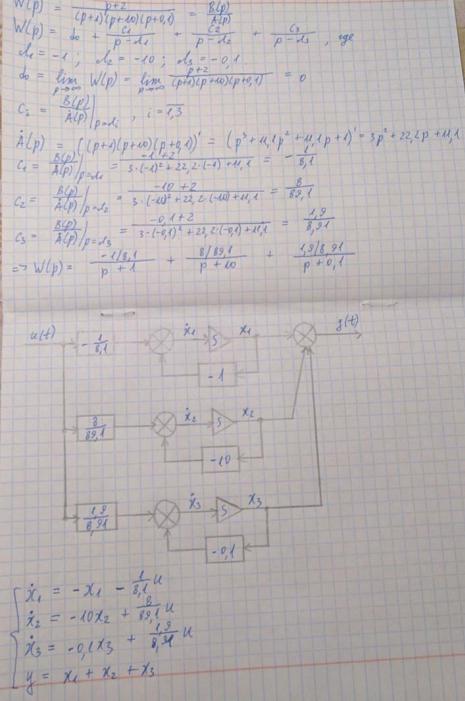 W(p) = \frac{p+2}{(p+1)(p+10)(p+0,1)} = \frac{B(p)}{A(p)}
W(p) = d₀ + \frac{C₁}{p-λ₁} + \frac{C₂}{p-λ₂} + \frac{C₃}{p-λ₃}, где
λ₁ = -1, λ₂ = -10; λ₃ = -0,1
d₀ = lim_{p→∞} W(p) = lim_{p→∞} \frac{p+2}{(p+1)(p+10)(p+0,1)} = 0
Cᵢ = \frac{B(p)}{Ȧ(p)}|_{p=λᵢ}, i = \overline{1,3}
Ȧ(p) = ((p+1)(p+10)(p+0,1))' = (p³+11,1p²+11,1p+1)' = 3p²+22,2p+11,1
C₁ = \frac{B(p)}{Ȧ(p)}|_{p=λ₁} = \frac{-1+2}{3·(-1)²+22,2·(-1)+11,1} = -\frac{1}{8,1}
C₂ = \frac{B(p)}{Ȧ(p)}|_{p=λ₂} = \frac{-10+2}{3·(-10)²+22,2·(-10)+11,1} = \frac{8}{89,1}
C₃ = \frac{B(p)}{Ȧ(p)}|_{p=λ₃} = \frac{-0,1+2}{3·(-0,1)²+22,2·(-0,1)+11,1} = \frac{1,9}{8,91}
=> W(p) = \frac{-1/8,1}{p+1} + \frac{8/89,1}{p+10} + \frac{1,9/8,91}{p+0,1}
u(t) -\frac{1}{8,1} ẋ₁ S x₁ y(t)
-1
\frac{8}{89,1} ẋ₂ S x₂
-10
\frac{1,9}{8,91} ẋ₃ S x₃
-0,1
ẋ₁ = -x₁ - \frac{1}{8,1}u
ẋ₂ = -10x₂ + \frac{8}{89,1}u
ẋ₃ = -0,1x₃ + \frac{1,9}{8,91}u
y = x₁ + x₂ + x₃